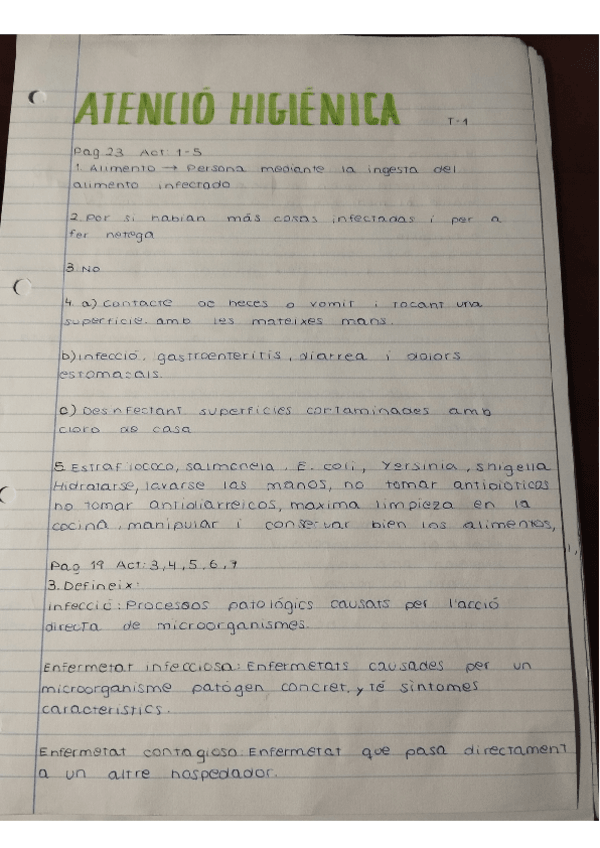 ATENCIÓ HIGIÉNICA T-1
Pag 23 Act: 1-5
1. Alimento → Persona mediante la ingesta del
alimento infectado
2. Por si habian más cosas infectadas i per a
fer netega
3. No
4. a) Contacte de heces o vomit i tocant una
superficie amb les mateixes mans.
b) infecció, gastroenteritis, diarrea i dolors
estomacals.
c) Desinfectant superficies contaminades amb
cloro de casa
5. Estrafilococo, salmonela, E. coli, Yersinia, shigella
Hidratarse, lavarse las manos, no tomar antibióticos
no tomar antidiarreicos, maxima limpieza en la
cocina, manipular i conservar bien los alimentos,
Pag 19 Act: 3,4,5,6,7
3. Defineix:
infecció: Processos patològics causats per l'acció
directa de microorganismes.
Enfermetat infecciosa: Enfermetats causades per un
microorganisme patógen concret, y té sintomes
caracteristics.
Enfermetat contagiosa: Enfermetat que pasa directament
a un altre hospedador.